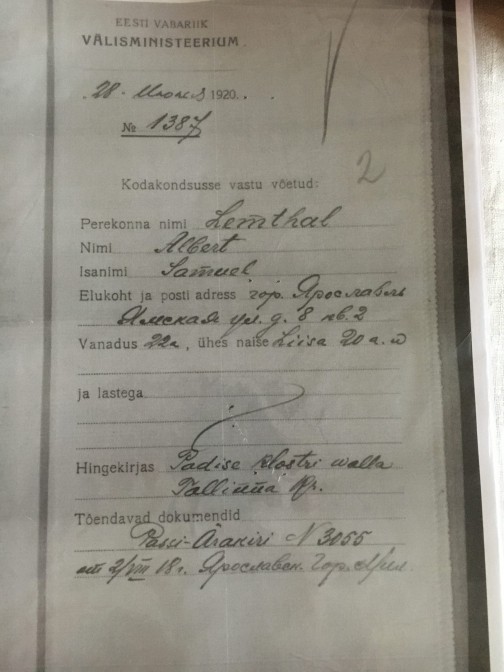 EESTI VABARIIK
VÄLISMINISTEERIUM.
28. Июня 1920.
№ 1387
2
Kodakondsusse vastu võetud:
Perekonna nimi Lemthal
Nimi Albert
Isanimi Samuel
Elukoht ja posti adress гор. Ярославль
Ямская ул. д. 8 кв. 2
Vanadus 22 a, ühes naise Liisa 20 a. w
ja lastega
Hingekirjas Padise klostri walla
Tallinna kr.
Tõendavad dokumendid
Passi-Ärakiri N 3055
от 2/VIII 18 г. Ярославск. Гор.